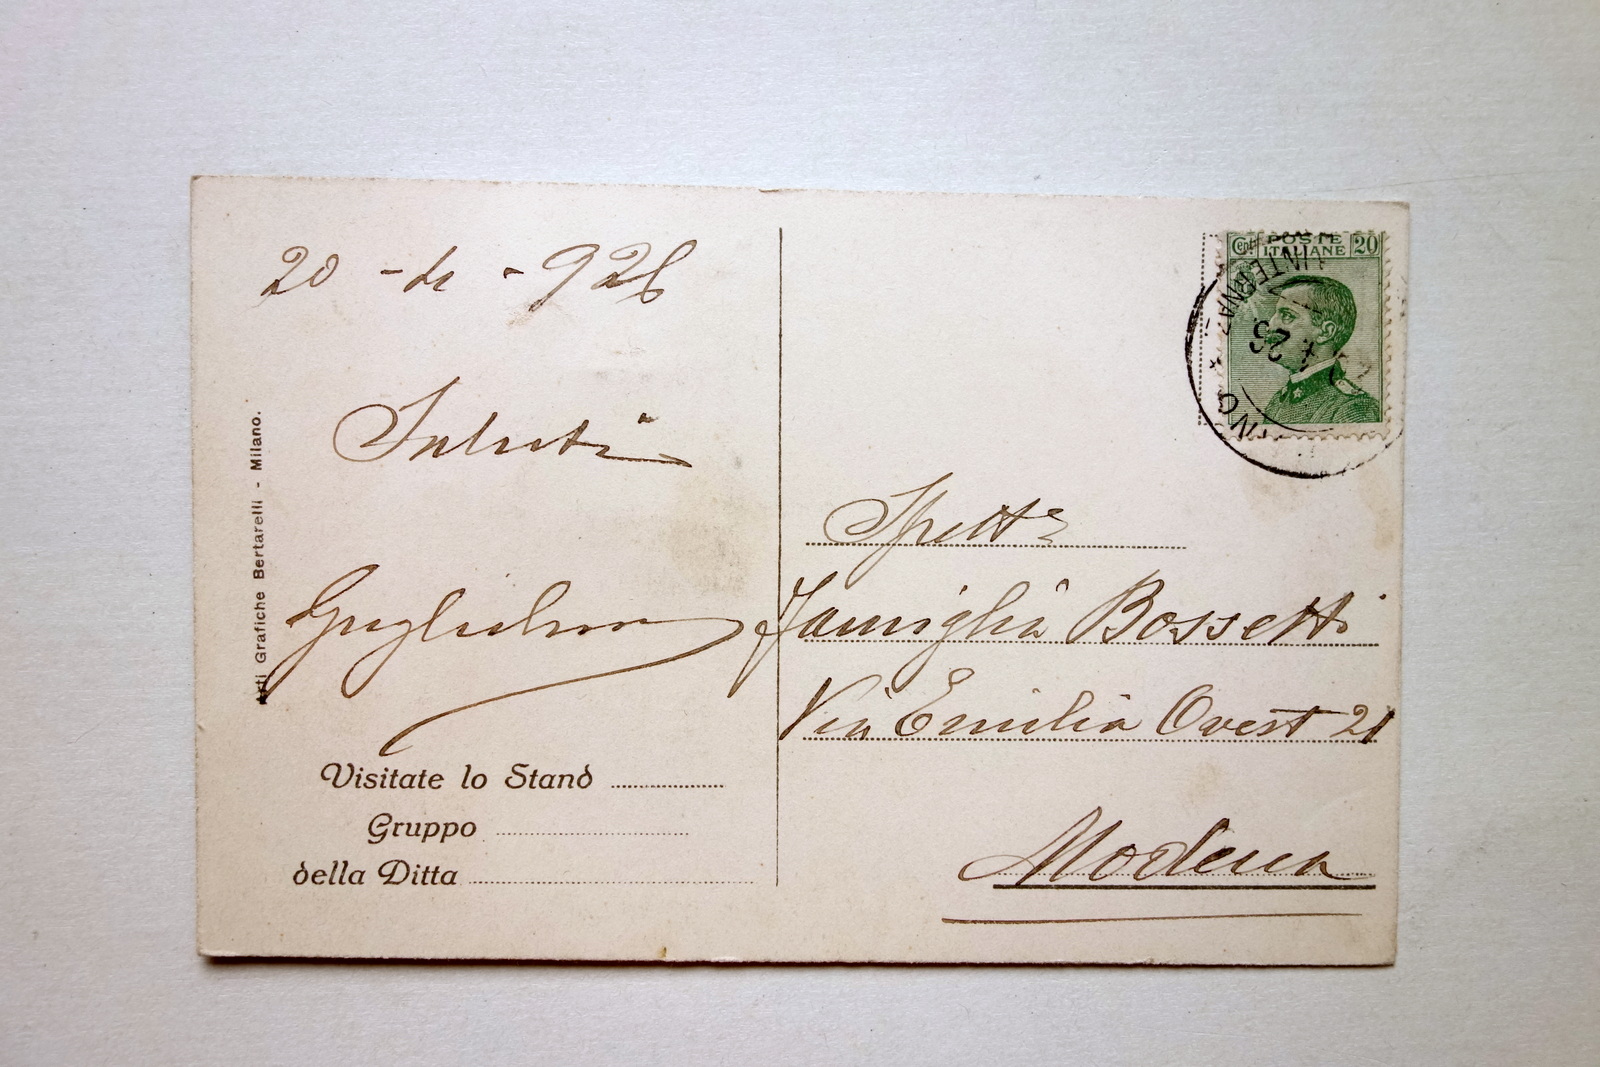 20 - - 926
Saluti
Guglielmo
Arti Grafiche Bertarelli - Milano.
Visitate lo Stand
Gruppo
della Ditta
Cent. POSTE ITALIANE 20
INTERNAZ.
26
Spett.
Famiglia Bossetti
Via Emilia Ovest 21
Modena